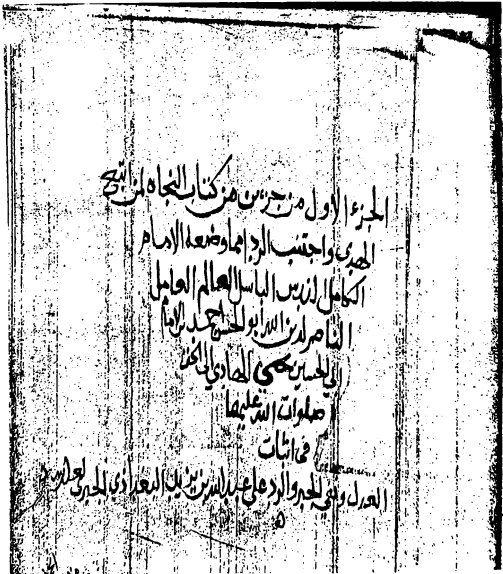 الجزء الاول من جزءين من كتاب النجاه لمن اتبع
الهدى واجتنب الردا مما وضعه الامام
الكامل الباسل العالم العامل
الناصر لدين الله ابو الحسن احمد بن الامام
الى الحسين يحيى الهادي الى الحق
صلوات الله عليهما
في اثبات
العدل ونفي الجبر والرد على عبد الله بن يزيد البغدادي